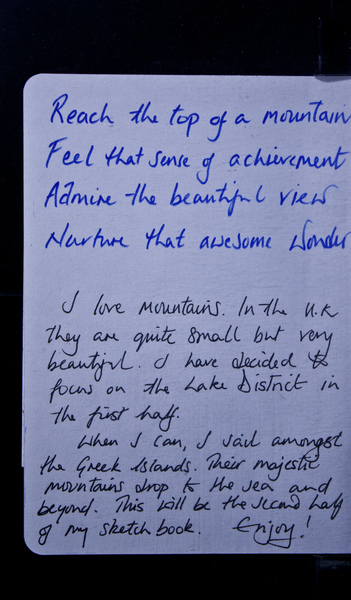 Reach the top of a mountain
Feel that sense of achievement
Admire the beautiful view
Nurture that awesome wonder
I love mountains. In the U.K
they are quite small but very
beautiful. I have decided to
focus on the Lake District in
the first half.
When I can, I sail amongst
the Greek Islands. Their majestic
mountains drop to the sea and
beyond. This will be the second half
of my sketch book. Enjoy!